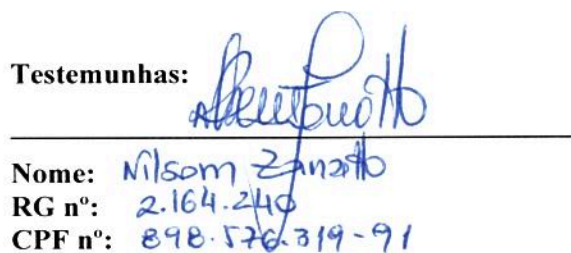 Testemunhas:
Nome: Nilsom Zanatto
RG nº: 2.164.240
CPF nº: 898.576.319-91